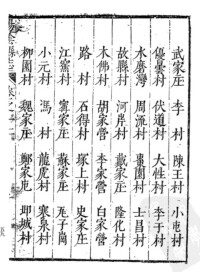 武家庄 李村 陳王村 小屯村
優曇村 伏道村 大性村 李于村
水磨灣 周流村 士昌村
故縣村 河岸村 戴家庄 隆化村
木佛村 胡家營 李家營 白家營
路村 石得村 塚上村 史家庄
江窯村 甯家庄 蘇家庄 瓦子崗
小元村 馮村 龍虎村 寒泉村
柳園村 魏家庄 鄭家庄 城村
縣志